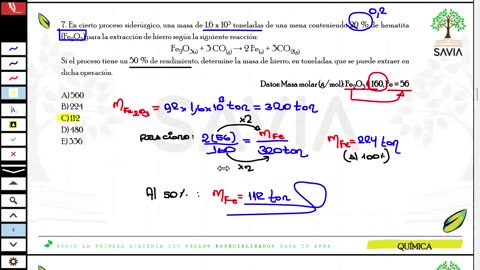 7. En cierto proceso siderúrgico, una masa de 1,6 x 10³ toneladas de una mesa conteniendo 20 % de hematita
0,2
(Fe₂O₃) para la extracción de hierro según la siguiente reacción:
SAVIA
Fe₂O₃(s) + 3 CO(g) → 2 Fe(s) + 3CO₂(g)
Si el proceso tiene un 50 % de rendimiento, determine la masa de hierro, en toneladas, que se puede extraer en
dicha operación.
Dato: Masa molar (g/mol): Fe₂O₃ = 160, Fe = 56
A) 560
B) 224
C) 112
D) 480
E) 336
mFe₂O₃ = 0,2 x 1,6 x 10³ ton = 320 ton
x2
Relaciono: 2(56)/160 = mFe/320 ton
x2
mFe = 224 ton
(Al 100%)
Al 50% : mFe = 112 ton
SOMOS LA PRIMERA ACADEMIA CON CICLOS ESPECIALIZADOS PARA TU ÁREA
QUÍMICA